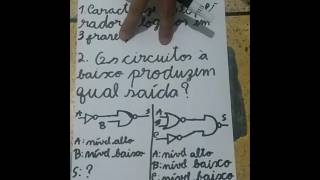 1. Caract
rador lógicos em
3 frases
2. Os circuitos à
baixo produzem
qual saída?
A
B
S
A
B
C
S
A: nível alto
B: nível baixo
S: ?
A: nível alto
B: nível baixo
C: nível baixo